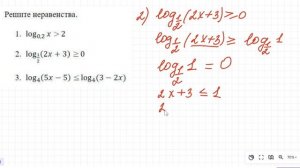 Решите неравенства.
1. log₀,₂ x > 2
2. log_{1/2}(2x + 3) ≥ 0
3. log₄(5x − 5) ≤ log₄(3 − 2x)
2) log_{1/2}(2x+3) ≥ 0
log_{1/2}(2x+3) ≥ log_{1/2} 1
log_{1/2} 1 = 0
2x+3 ≤ 1
2